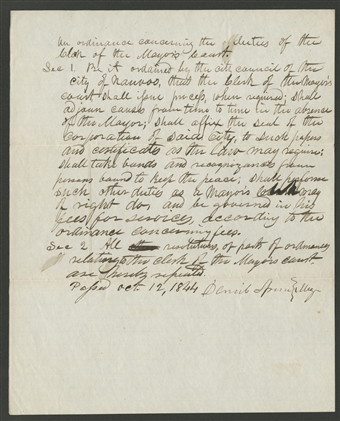 An ordinance concerning the duties of the
Clerk of the Mayor's Court
Sec 1. Be it ordained by the city council of the
city of Nauvoo, that the Clerk of the Mayor's
court shall issue process, when required; shall
adjourn causes from time to time in the absence
of the Mayor; shall affix the seal of the
Corporation of said City, to such papers
and certificates as the law may require;
shall take bonds and recognizances from
persons bound to keep the peace; shall perform
such other duties as a Mayor's may
right do, and be governed in his
fees for services, according to the
ordinance concerning fees.
Sec 2 All resolutions, or part of ordinances
relating to the clerk of the Mayor's court
are hereby repealed
Passed Oct. 12, 1844 Daniel Spencer Mayor